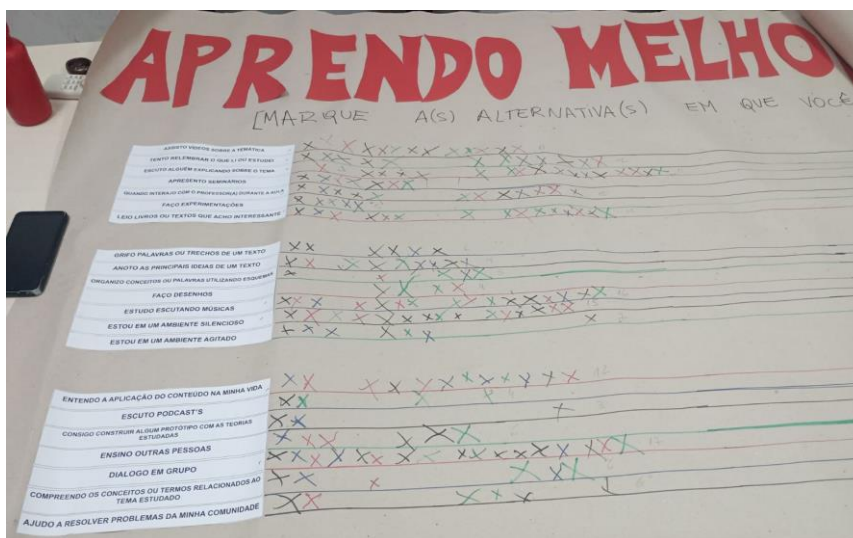 APRENDO MELHO
[MARQUE A(S) ALTERNATIVA(S) EM QUE VOCÊ
ASSISTO VÍDEOS SOBRE A TEMÁTICA
TENTO RELEMBRAR O QUE LI OU ESTUDEI
ESCUTO ALGUÉM EXPLICANDO SOBRE O TEMA
APRESENTO SEMINÁRIOS
QUANDO INTERAJO COM O PROFESSOR(A) DURANTE A AULA
FAÇO EXPERIMENTAÇÕES
LEIO LIVROS OU TEXTOS QUE ACHO INTERESSANTE
GRIFO PALAVRAS OU TRECHOS DE UM TEXTO
ANOTO AS PRINCIPAIS IDEIAS DE UM TEXTO
ORGANIZO CONCEITOS OU PALAVRAS UTILIZANDO ESQUEMAS
FAÇO DESENHOS
ESTUDO ESCUTANDO MÚSICAS
ESTOU EM UM AMBIENTE SILENCIOSO
ESTOU EM UM AMBIENTE AGITADO
ENTENDO A APLICAÇÃO DO CONTEÚDO NA MINHA VIDA
ESCUTO PODCAST'S
CONSIGO CONSTRUIR ALGUM PROTÓTIPO COM AS TEORIAS
ESTUDADAS
ENSINO OUTRAS PESSOAS
DIALOGO EM GRUPO
COMPREENDO OS CONCEITOS OU TERMOS RELACIONADOS AO
TEMA ESTUDADO
AJUDO A RESOLVER PROBLEMAS DA MINHA COMUNIDADE